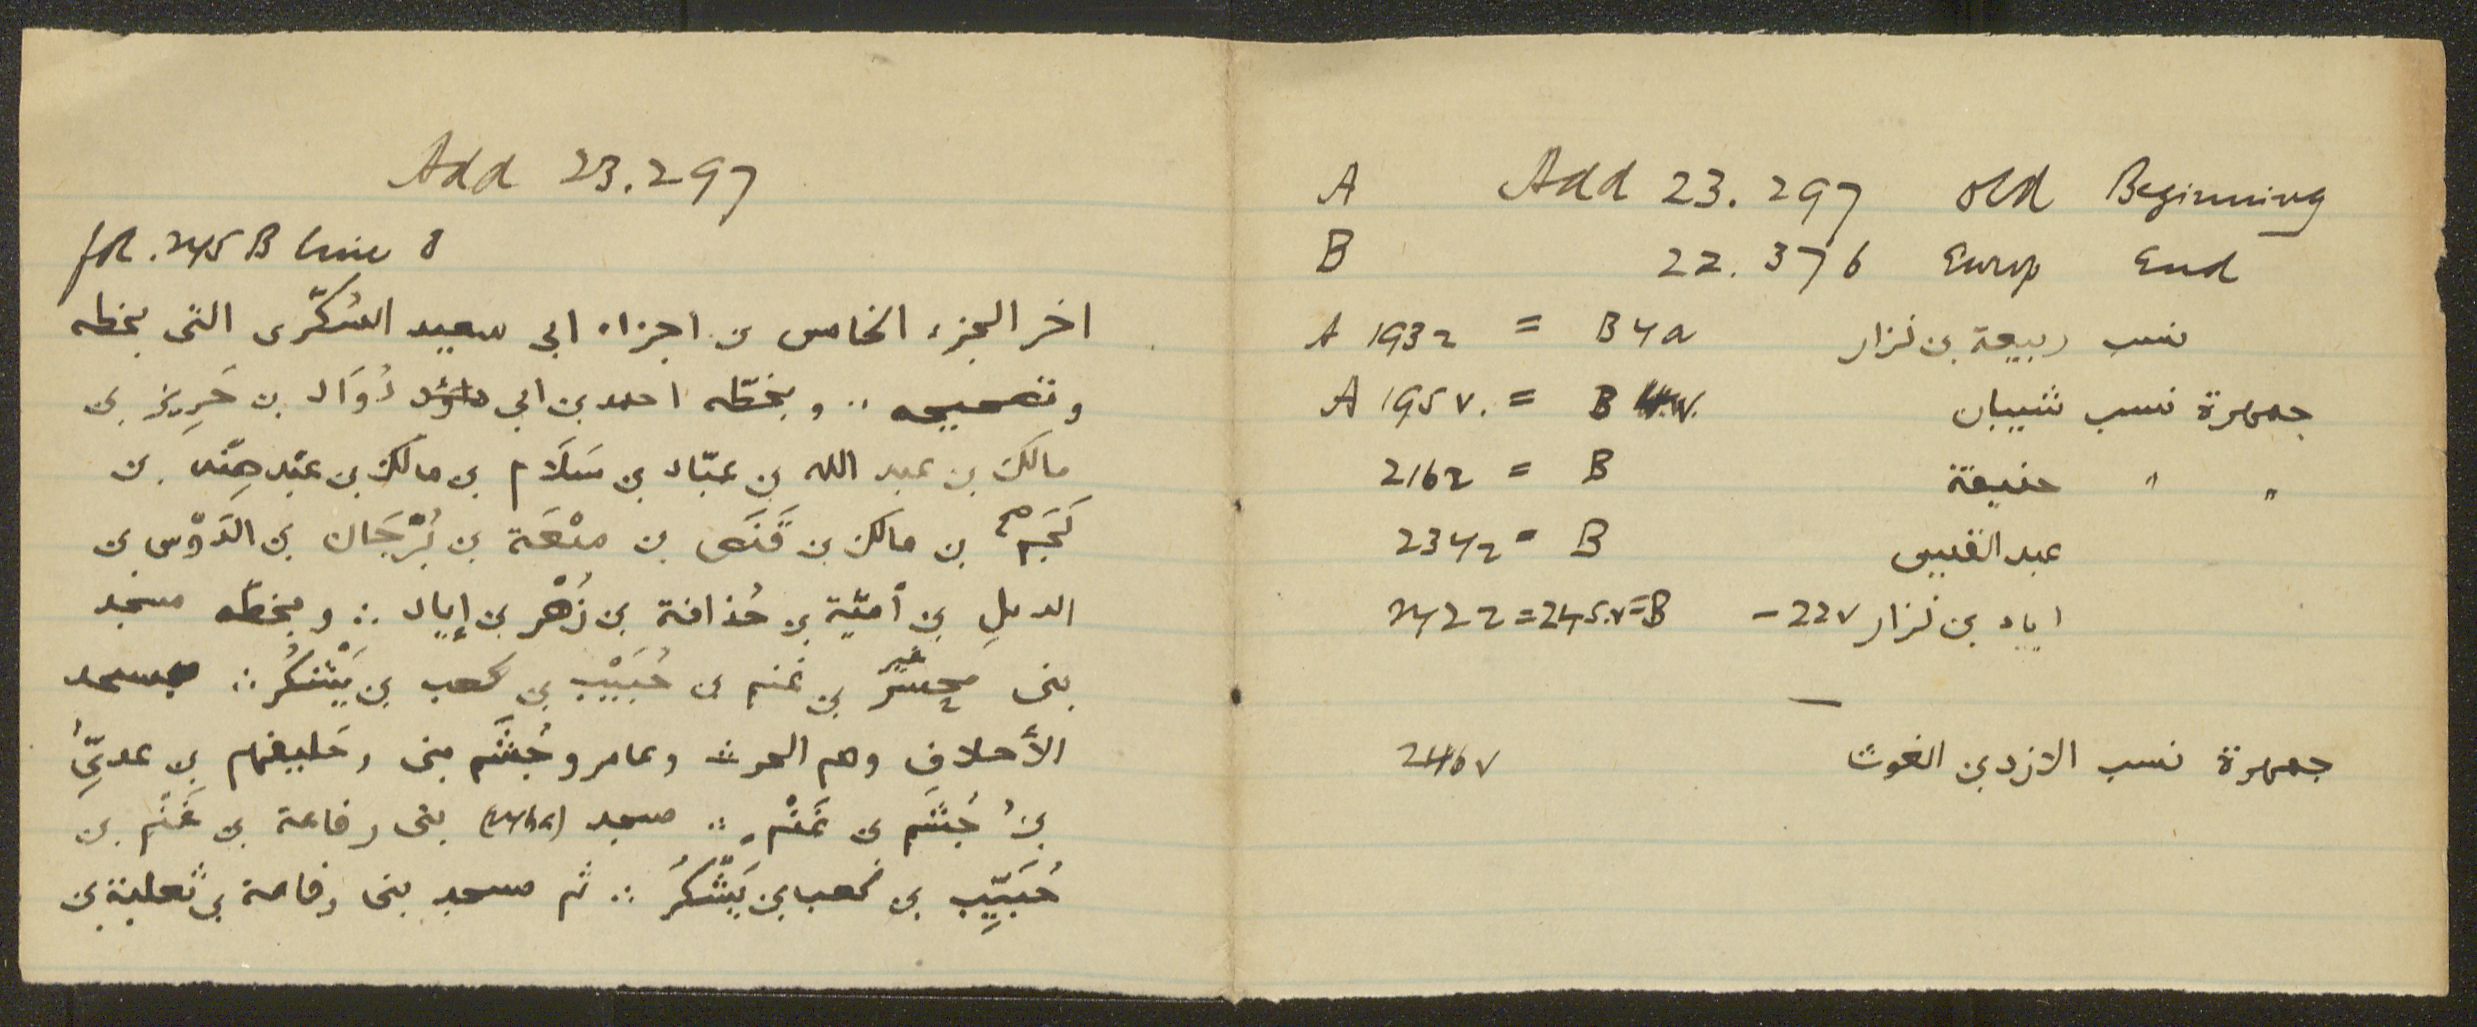 Add 23.297
fol. 245 B line 8
اخر الجزء الخامس من اجزاء ابي سعيد السُكّرى التى بخطه
وتصحيحه ∴ وبخطّه احمد بن ابى دُوَاد بن حَرِيز بن
مالك بن عبد الله بن عبّاد بن سَلَام بن مالك بن عبْد هِنْد بن
لَخْم بن مالك بن قَنَص بن منْعَة بن بُرْجَان بن الدَوْس بن
الديلِ بن أميّة بن حُذافة بن زُهْر بن إياد ∴ وبخطّه مسجد
بنى بن غنم بن حُبَيْب بن كعب بن يَشْكُرُ ∴ مسجد
الأحلافِ وهم الحرث وعامر وجُشَم بنى وحَليفهم بن عدىِّ
بن جُشَم بن غَنْم ∴ مسجد (246a) بنى رفاعة بن غَنْم بن
حُبَيِّب بن كعب بن يَشْكُرُ ∴ ثم مسجد بنى رفاعة بن ثعلبة بن
A Add 23.297 old Beginning
B 22.376 Europ End
A 193r = B 4a نسب ربيعة بن نزار
A 195 v. = B جمهرة نسب شيبان
216r = B حنيفة " "
234r = B عبد القيس
242r = 245.v = B – 22v اياد بن نزار
246v جمهرة نسب الازد بن الغوث